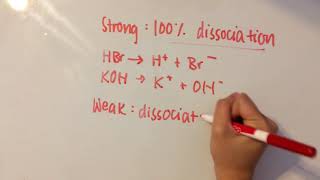 Strong : 100% dissociation
HBr → H⁺ + Br⁻
KOH → K⁺ + OH⁻
Weak : dissociat